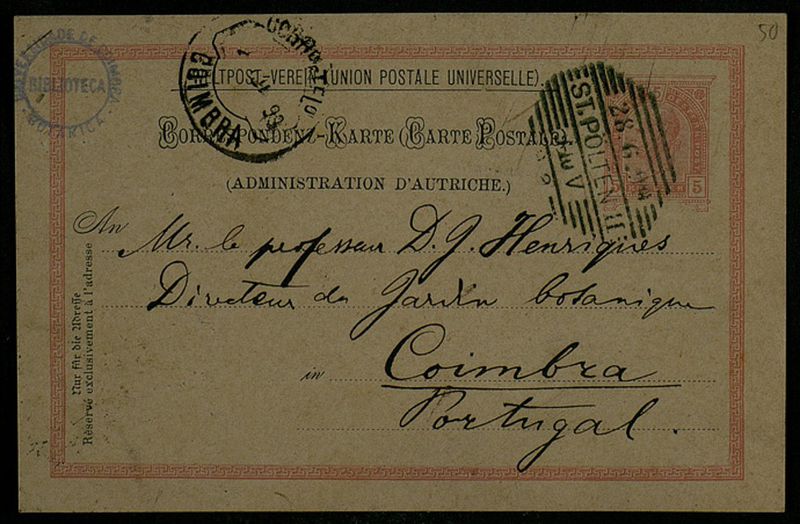 50
BIBLIOTECA
BOTANICA
WELTPOST-VEREIN (UNION POSTALE UNIVERSELLE).
CORRESPONDENZ-KARTE (CARTE POSTALE)
(ADMINISTRATION D'AUTRICHE.)
COIMBRA
93
ST. PÖLTEN
28 6
5
An Mr. le professeur D. J. Henriques
Directeur du Jardin botanique
in Coimbra
Portugal.
Nur für die Adresse
Réservé exclusivement à l'adresse